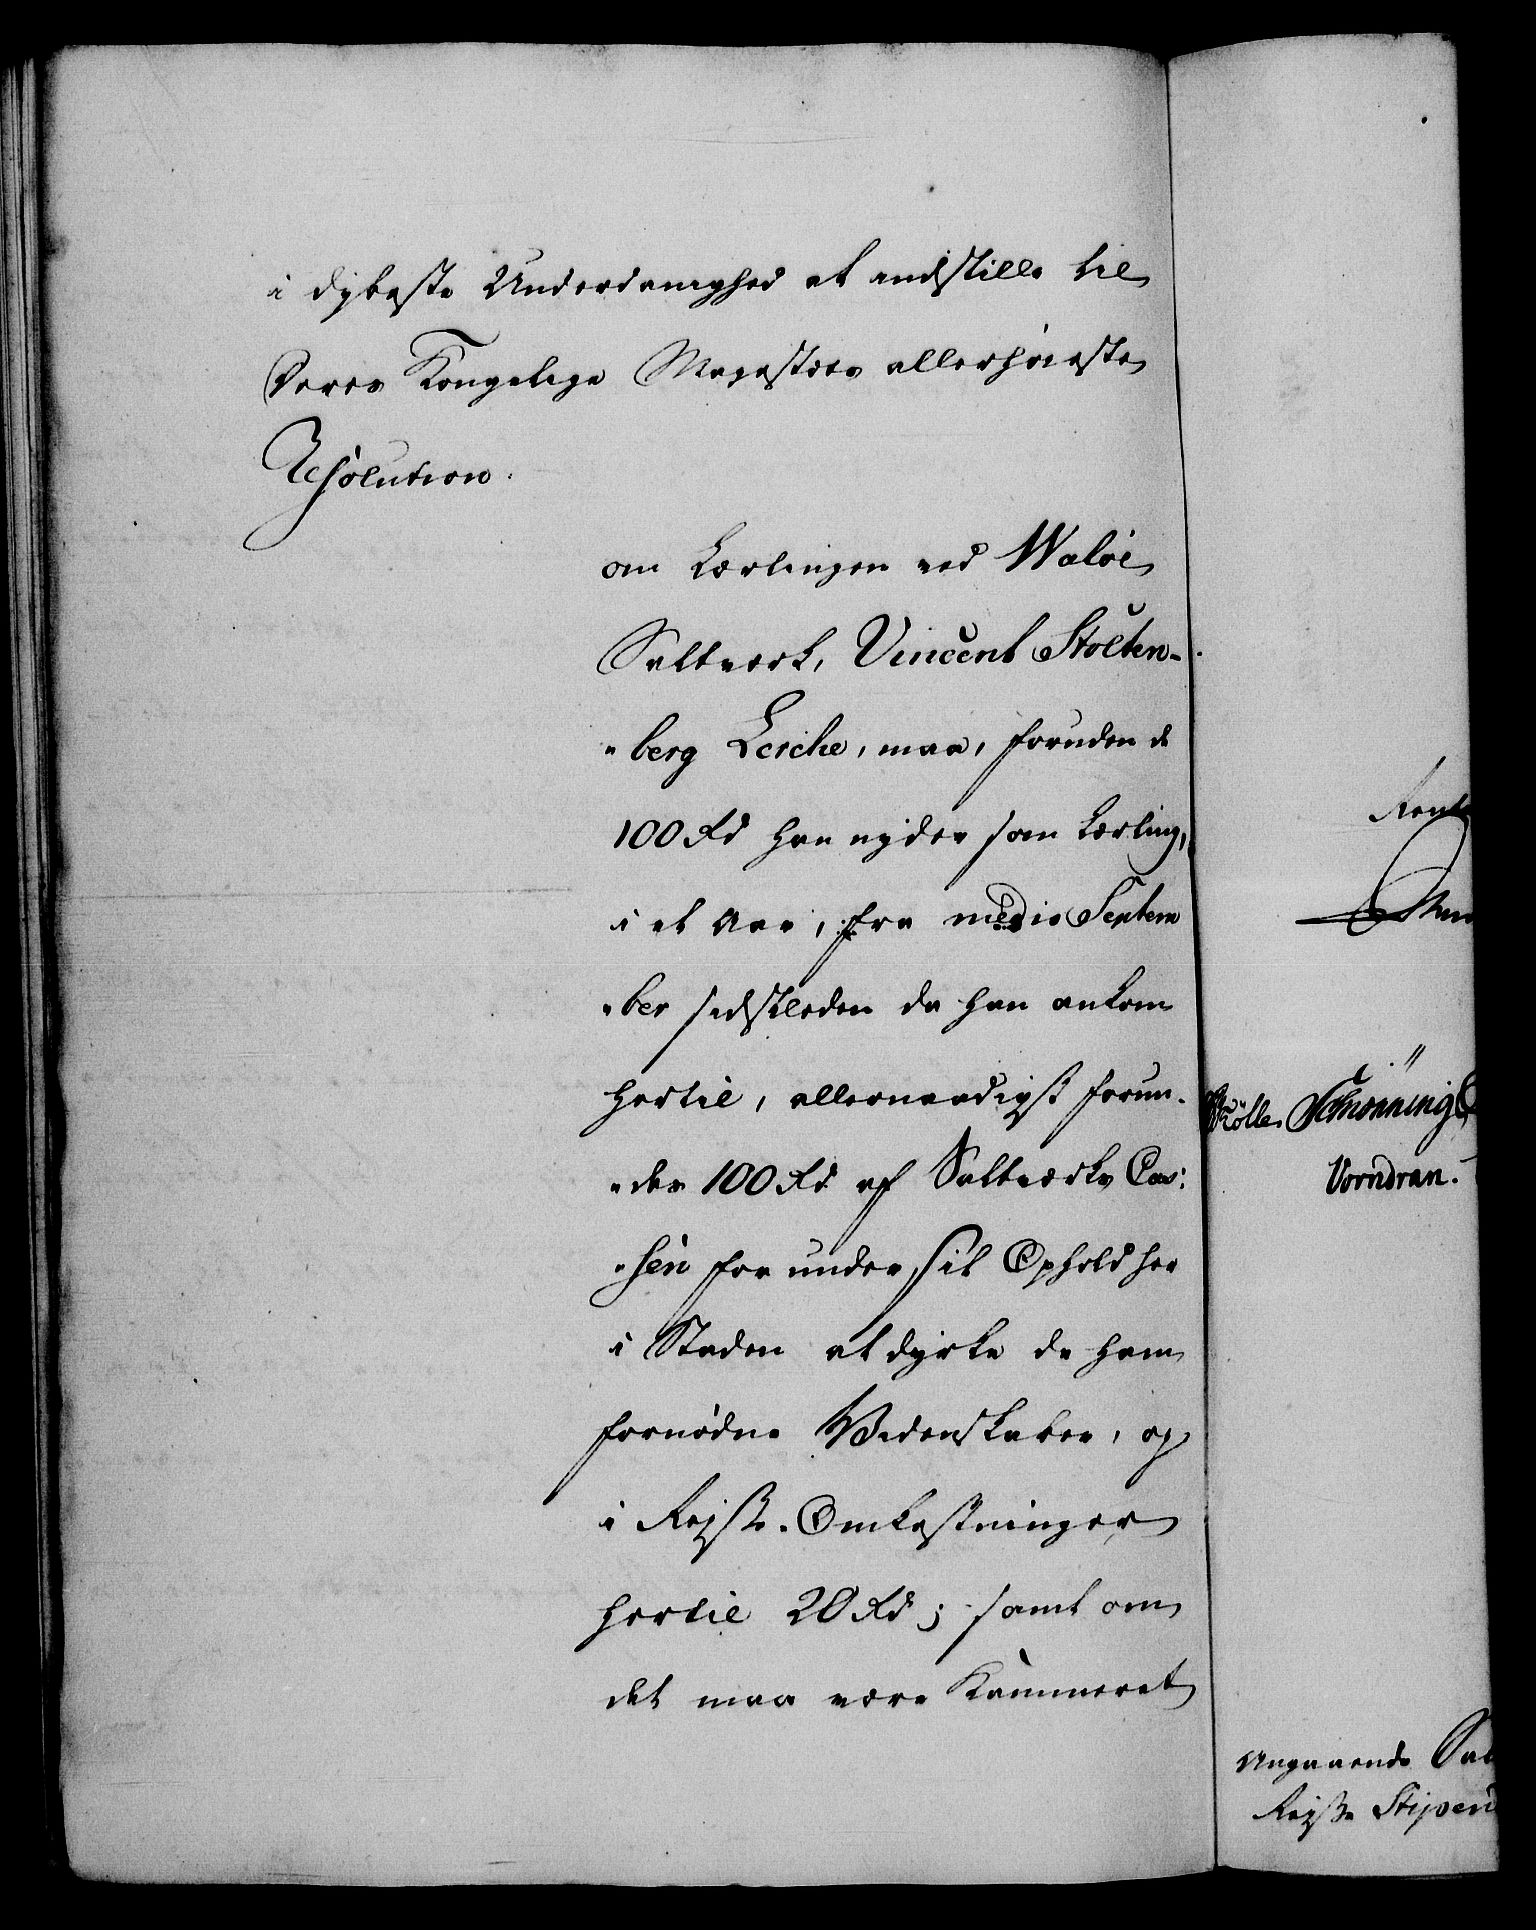 i dybeste Underdanighed at indstille til
Deres Kongelige Majestæts allerhöieste
Resolution.
om Lærlingen ved Waløe
Saltværk, Vincent Stolten-
"berg Lerche, maa, foruden de
100 Rd han nyder som Lærling,
i et Aar, fra medio Septem
"ber sidstleden da han ankom
hertil, allernaadigst forun-
"des 100 Rd af Saltværks Cas-
"sen for under sit Ophold her
i Staden at dyrke de ham
fornødne Videnskaber, og
i Rejse-Omkostninger
hertil 20 Rd; samt om
det maa være Kammeret
Rent
Schönning
Vorndran.
Angaaende Sal
Rejse Stipen